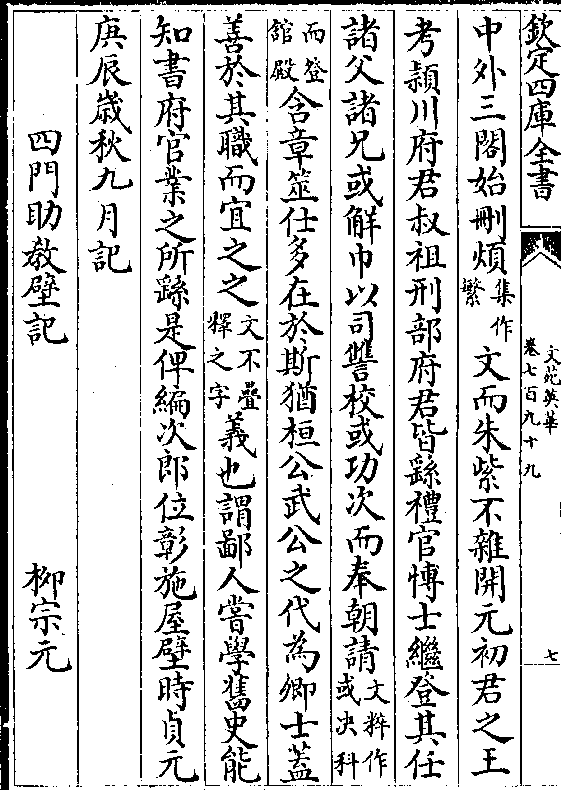 欽定四庫全書
文苑英華
卷七百九十九
七
中外三閣始刪煩集作繁文而朱紫不雜開元初君之王
考頴川府君叔祖刑部府君皆繇禮官愽士繼登其任
諸父諸兄或解巾以司讐校或功次而奉朝請文粹作或決科
而登館殿含章筮仕多在於斯猶桓公武公之代為卿士蓋
善於其職而宜之之文不疊釋之字義也謂鄙人嘗學舊史能
知書府官業之所繇是俾編次郎位彰施屋壁時貞元
庚辰歲秋九月記
四門助教壁記 柳宗元